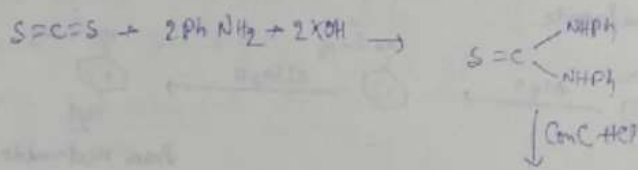 S=C=S + 2Ph NH2 + 2KOH →
NHPh
S=C
NHPh
↓ Conc HCl